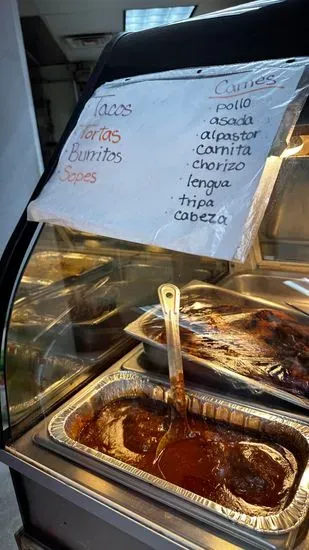 Tacos
Tortas
Burritos
Sopes
Carnes
pollo
asada
alpastor
carnita
chorizo
lengua
tripa
cabeza